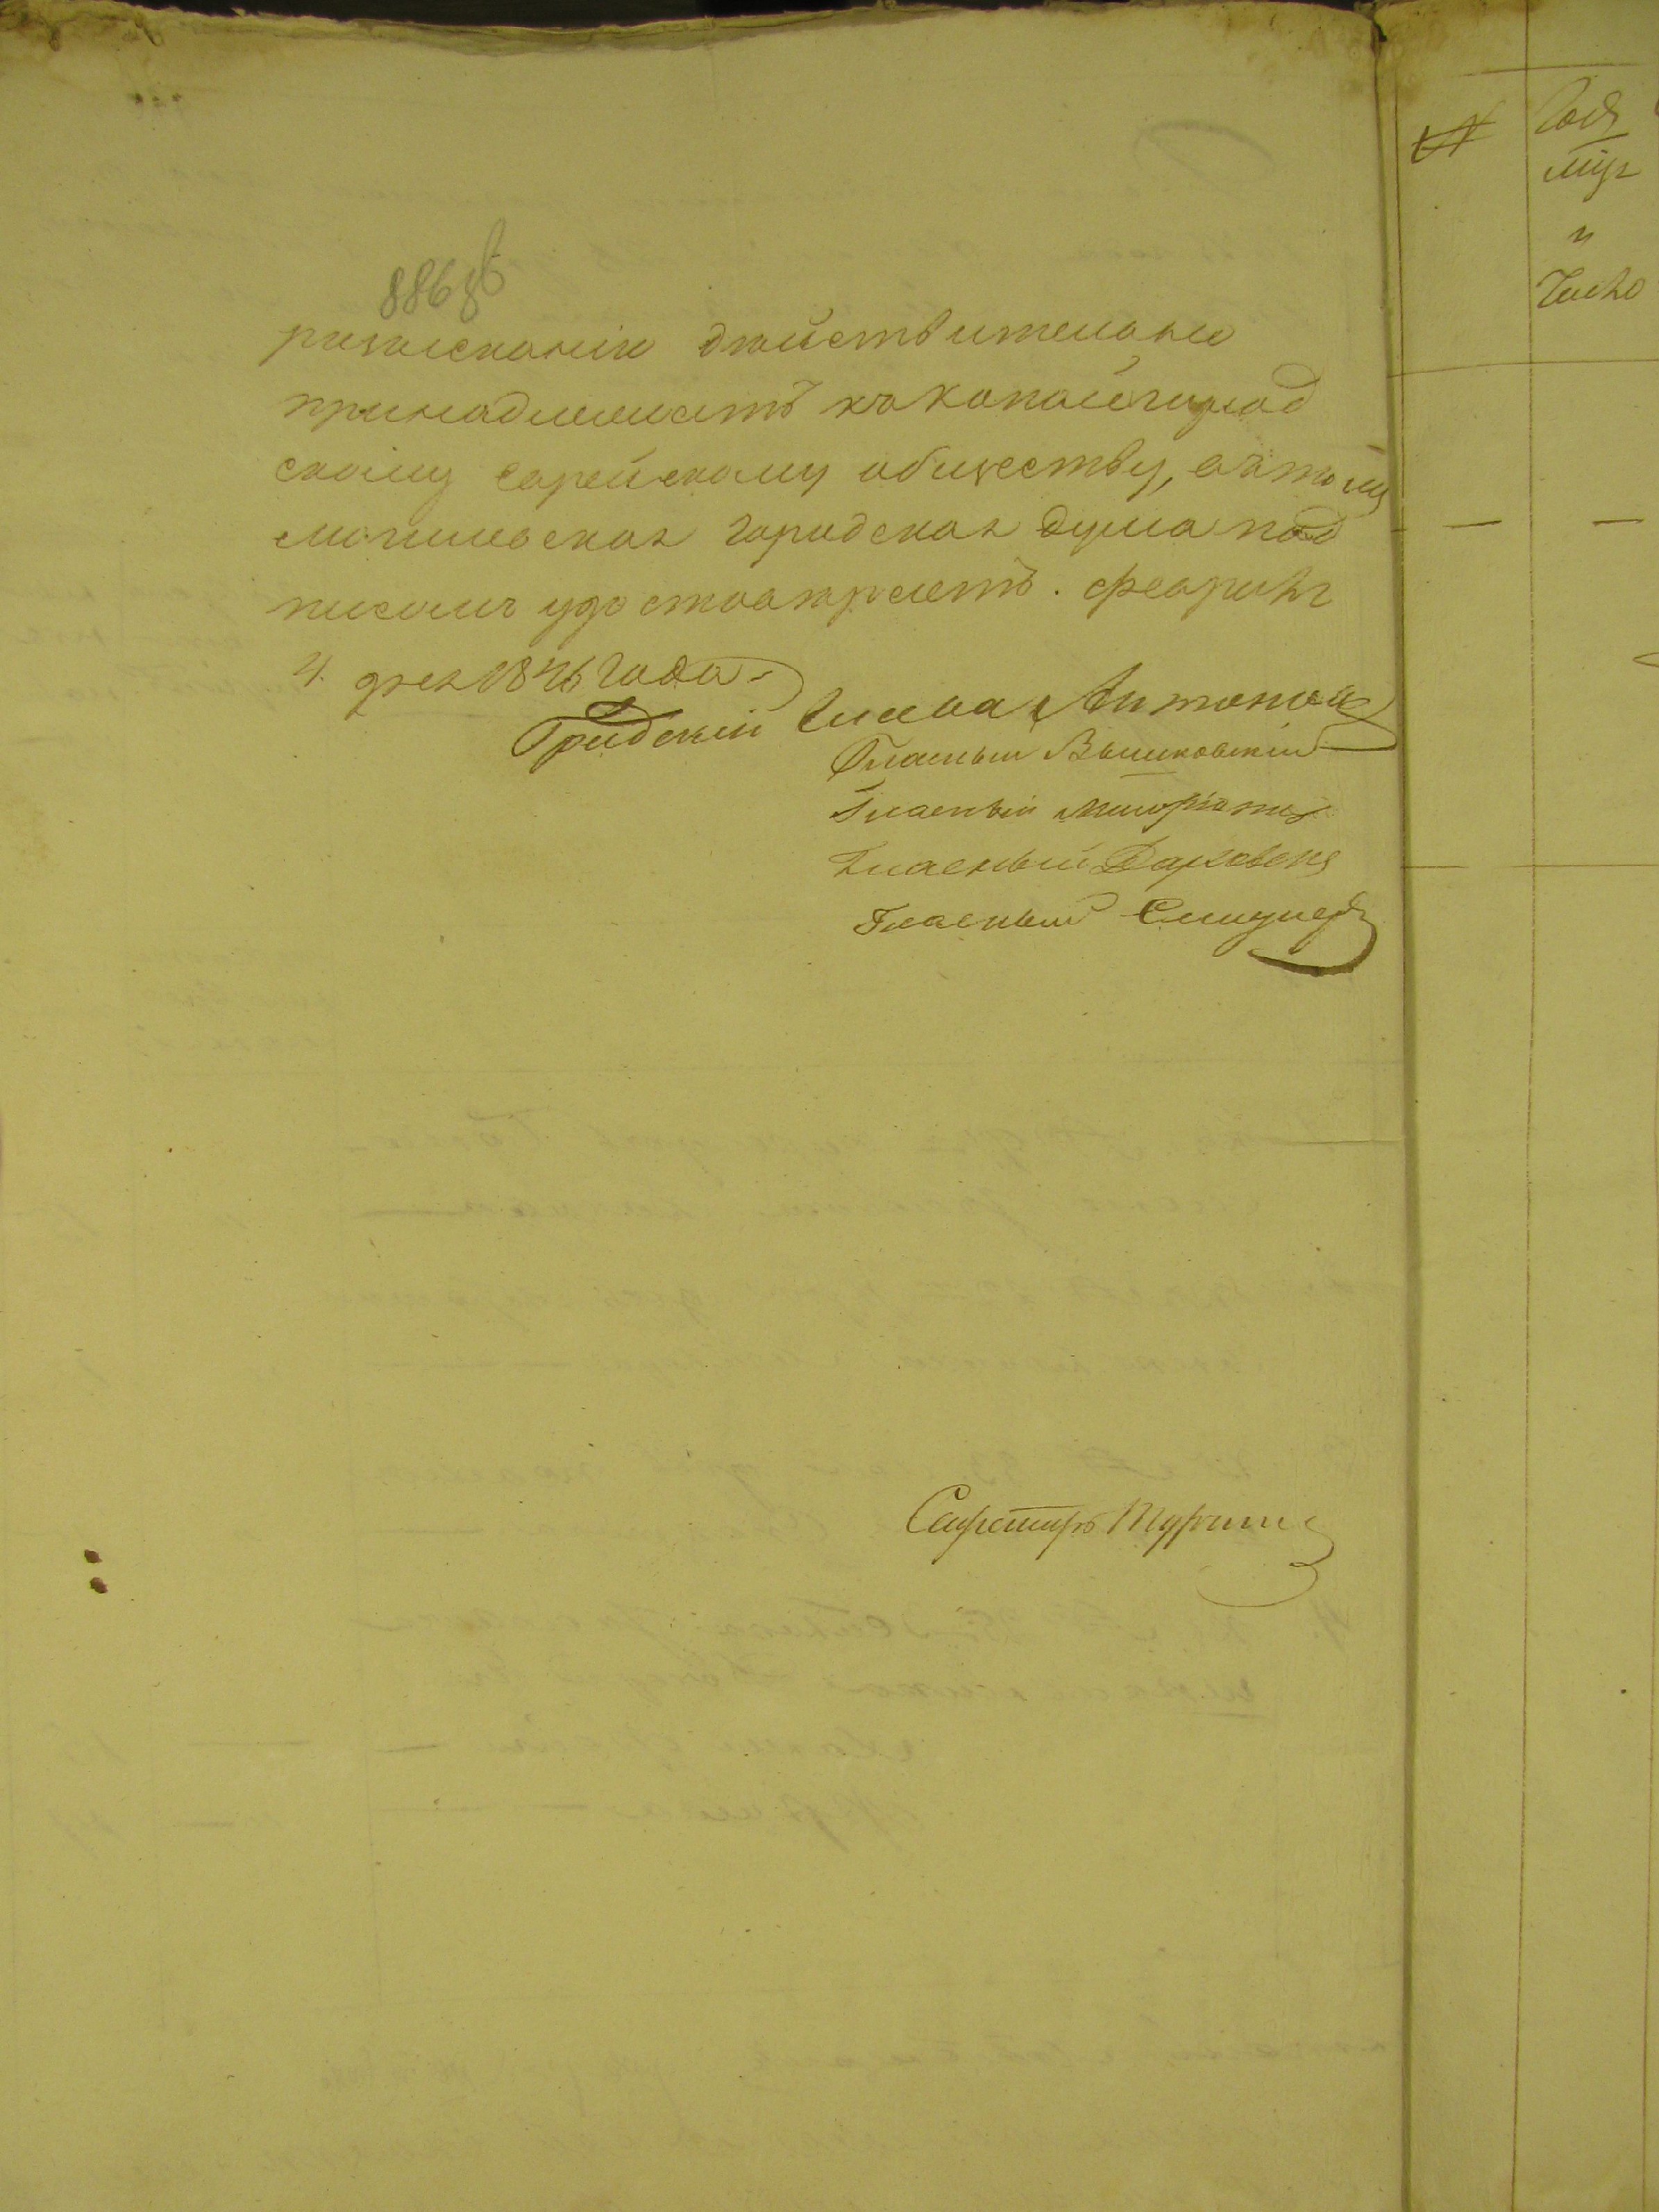 886 об
розысканію действительно
принадлежатъ къ Копайгород
скому еврейскому обществу, въ томъ
Могилевская Городская Дума под
писомъ удостоверяетъ. Февраля
4. дня 1846 года
Градскій Глава Антонов
Гласный Вышковскій
Гласный
Гласный
Гласный
Секретарь
№
Годъ
мця
и
Число